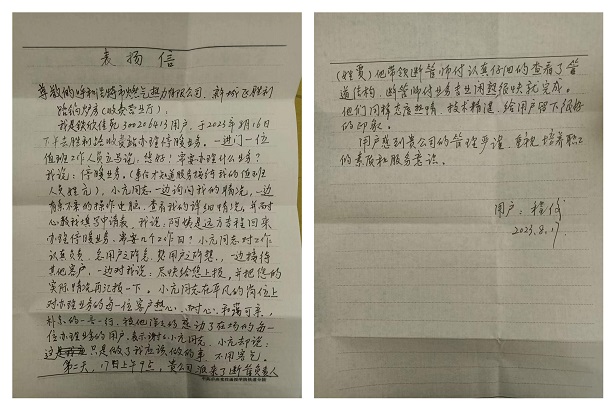 表扬信
尊敬的呼和浩特市燃气热力有限公司、新城区胜利
路 (收费营业厅):
我是 用户,于2023年8月16日
下午去胜利路收费站办理停暖业务。一进门一位
值班工作人员立马说:您好!需要办理什么业务?
我说:停暖业务。(事后才知道服务接待我的值班
人员姓亢),小亢同志一边询问我的情况,一边
有条不紊的操作电脑,查看我的详细情况,并耐
心教我填写申请表。我说:阿姨是远方专程回来
办理停暖业务,需要几个工作日?小亢同志对工作
认真负责,急用户之所急,想用户之所想,一边接待
其他客户,一边对我说:尽快给您上报,并把您的
实际情况再汇报一下。小亢同志在平凡的岗位上
对办理业务的每一位客户热心、耐心、和蔼可亲,
朴实的一言一行, 感动了在场的每一
位办理业务的用户,表示谢意小亢同志,小亢却说:
这 只是做了我应该做的事,不用客气。
第二天,17日上午9点,贵公司派来了断管负责人
(姓贾)他带领断管师付认真仔细的查看了管
道结构,断管师付业务专业闲熟很快就完成。
他们同样态度热情、技术精湛,给用户留下了深刻
的印象。
用户感到贵公司的管理严谨,重视培养职工
的素质和服务意识。
用户:程
2023.8.17.